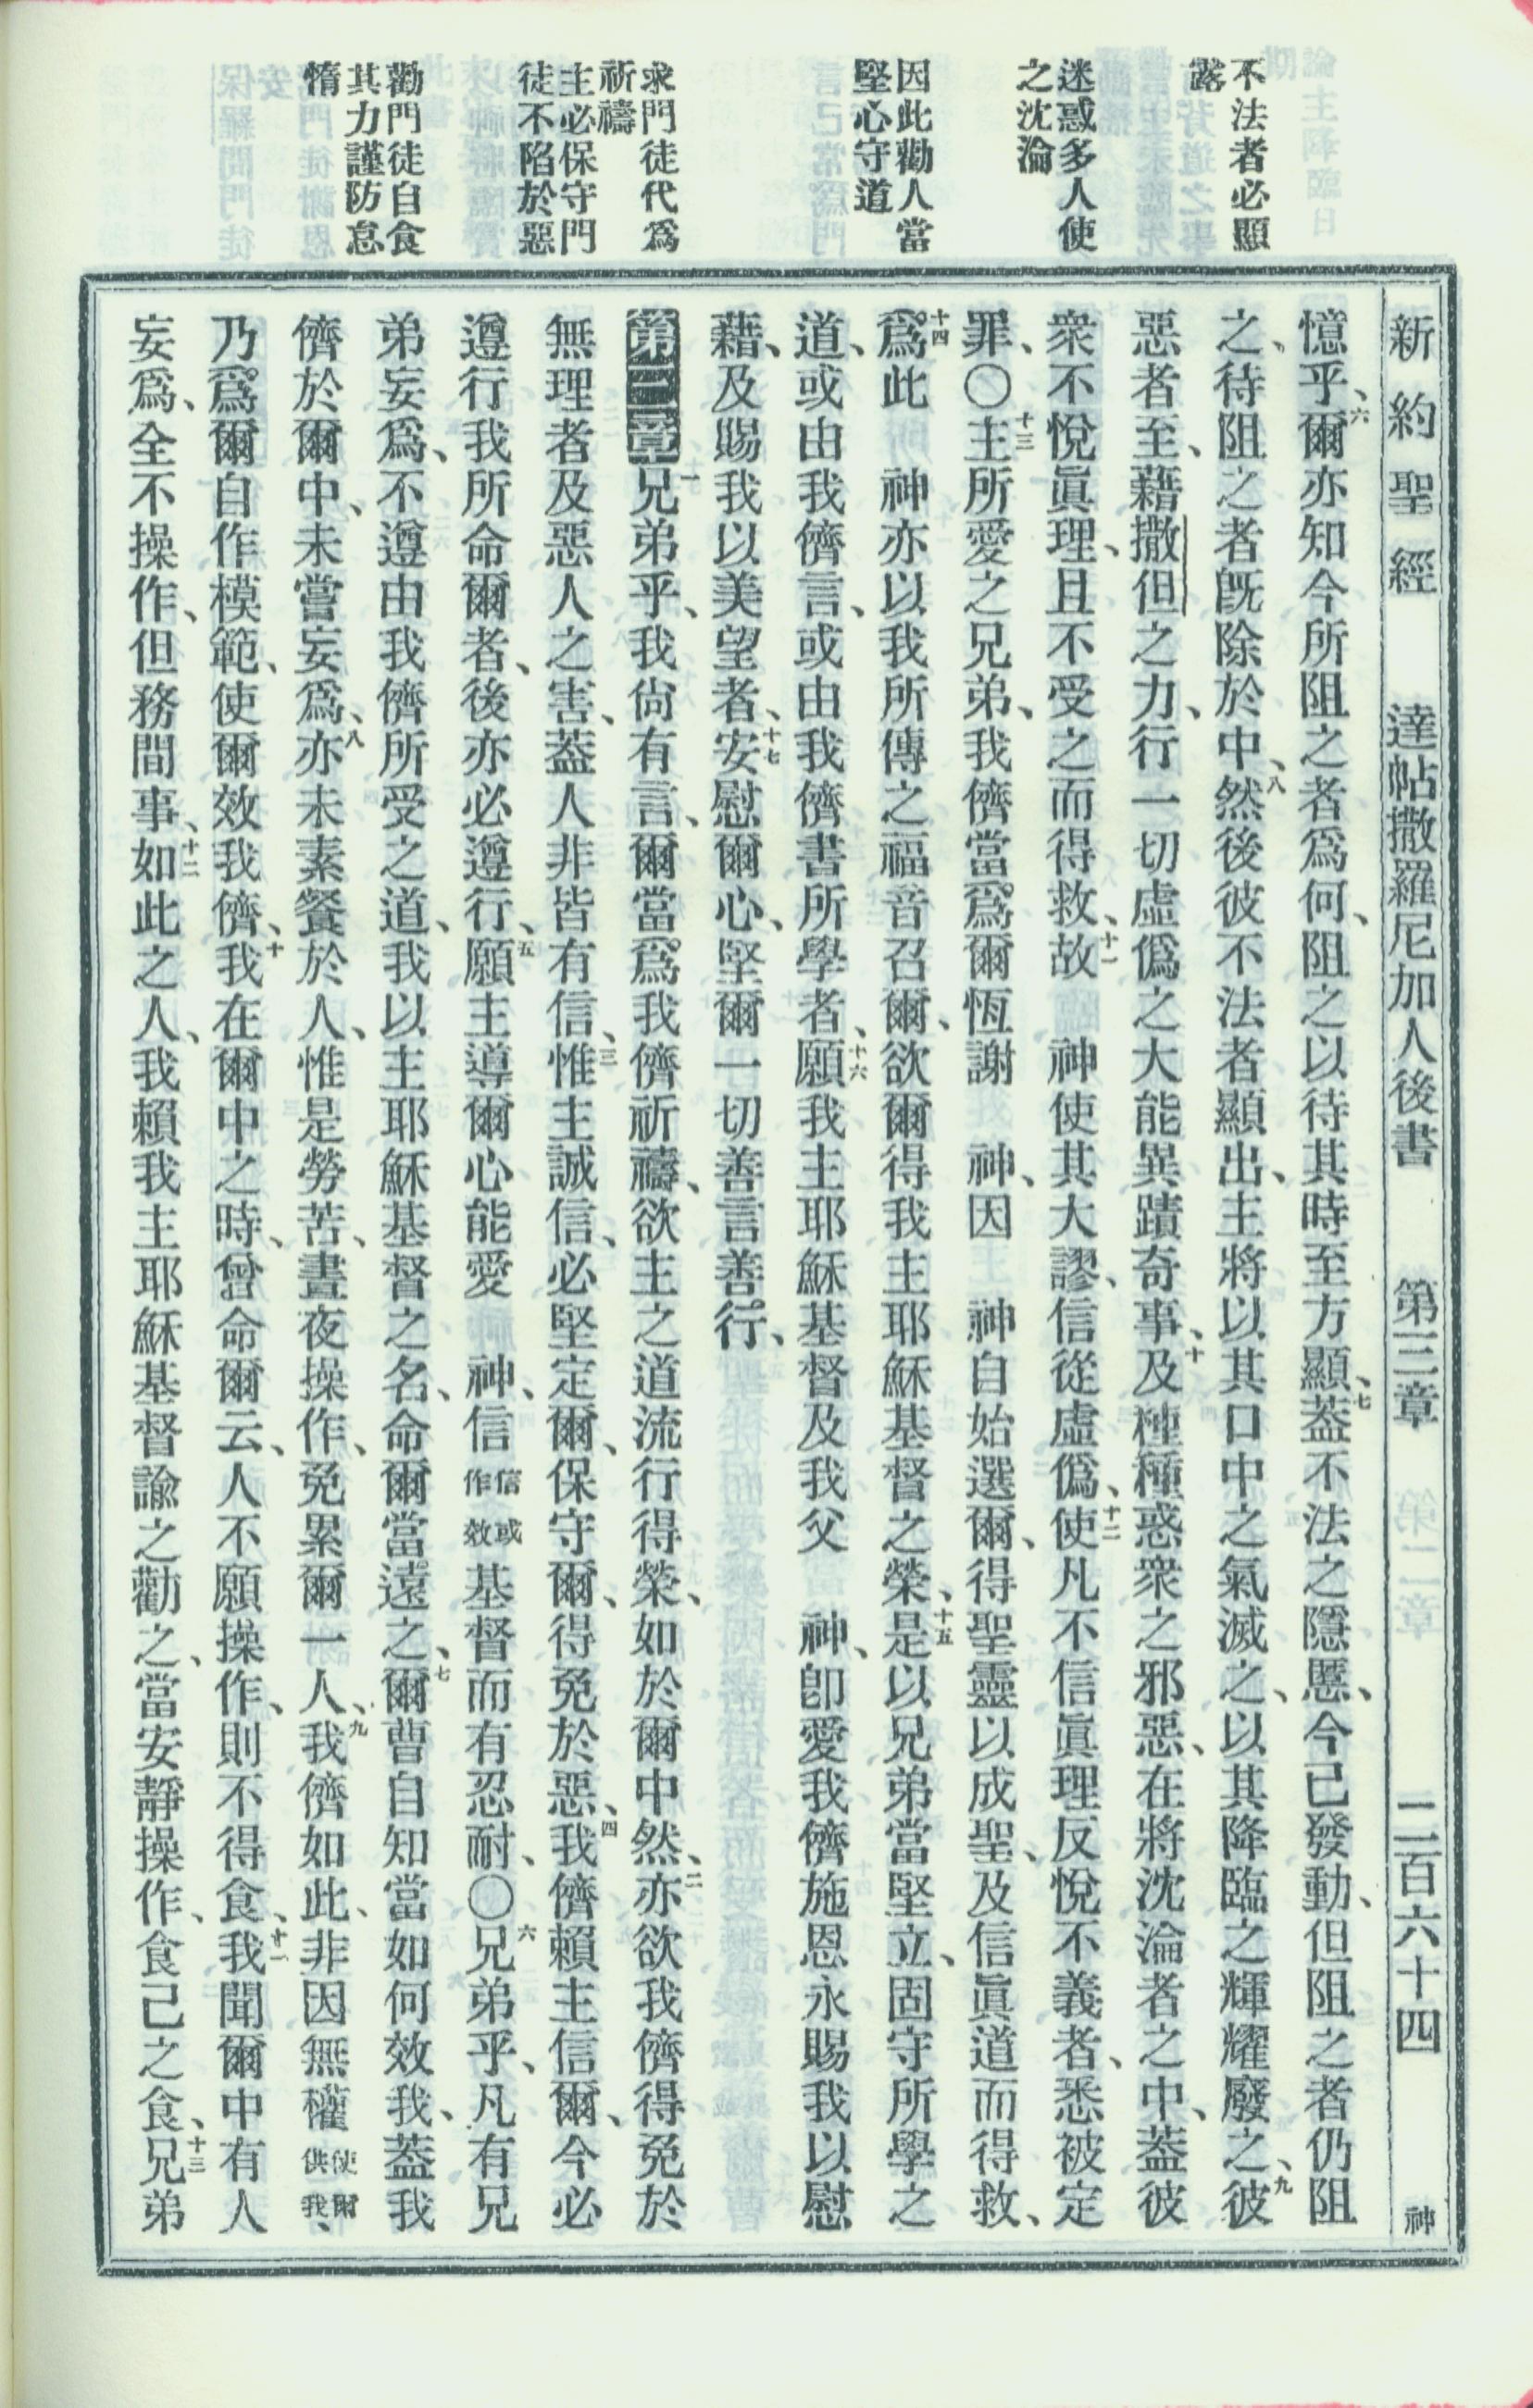 新約聖經　達帖撒羅尼加人後書　第三章　二百六十四　神
不法者必顯
露
迷惑多人使
之沈淪
因此勸人當
堅心守道
求門徒代爲
祈禱
主必保守門
徒不陷於惡
勸門徒自食
其力謹防怠
惰
憶乎、六爾亦知今所阻之者爲何、阻之以待其時至方顯、七蓋不法之隱慝、今已發動、但阻之者仍阻
之、待阻之者旣除於中、八然後彼不法者顯出、主將以其口中之氣滅之、以其降臨之輝耀廢之、九彼
惡者至、藉撒但之力、行一切虛僞之大能異蹟奇事、十及種種惑衆之邪惡、在將沈淪者之中、蓋彼
衆不悅眞理、且不受之而得救、十一故　神使其大謬、信從虛僞、十二使凡不信眞理反悅不義者、悉被定
罪、〇十三主所愛之兄弟、我儕當爲爾恆謝　神、因　神自始選爾、得聖靈以成聖、及信眞道而得救、
十四爲此　神亦以我所傳之福音召爾、欲爾得我主耶穌基督之榮、十五是以兄弟當堅立、固守所學之
道、或由我儕言、或由我儕書所學者、十六願我主耶穌基督及我父　神、卽愛我儕施恩永賜我以慰
藉、及賜我以美望者、十七安慰爾心、堅爾一切善言善行、
第三章一兄弟乎、我尙有言、爾當爲我儕祈禱、欲主之道流行得榮、如於爾中然、二亦欲我儕得免於
無理者及惡人之害、蓋人非皆有信、三惟主誠信、必堅定爾、保守爾、得免於惡、四我儕賴主信爾、今必
遵行我所命爾者、後亦必遵行、五願主導爾心能愛　神、信信或作效基督而有忍耐、〇六兄弟乎、凡有兄
弟妄爲、不遵由我儕所受之道、我以主耶穌基督之名、命爾當遠之、七爾曹自知當如何效我、蓋我
儕於爾中、未嘗妄爲、八亦未素餐於人、惟是勞苦、晝夜操作、免累爾一人、九我儕如此、非因無權使爾供我、
乃爲爾自作模範、使爾效我儕、十我在爾中之時、曾命爾云、人不願操作、則不得食、十一我聞爾中有人
妄爲、全不操作、但務間事、十二如此之人、我賴我主耶穌基督諭之勸之、當安靜操作、食己之食、十三兄弟